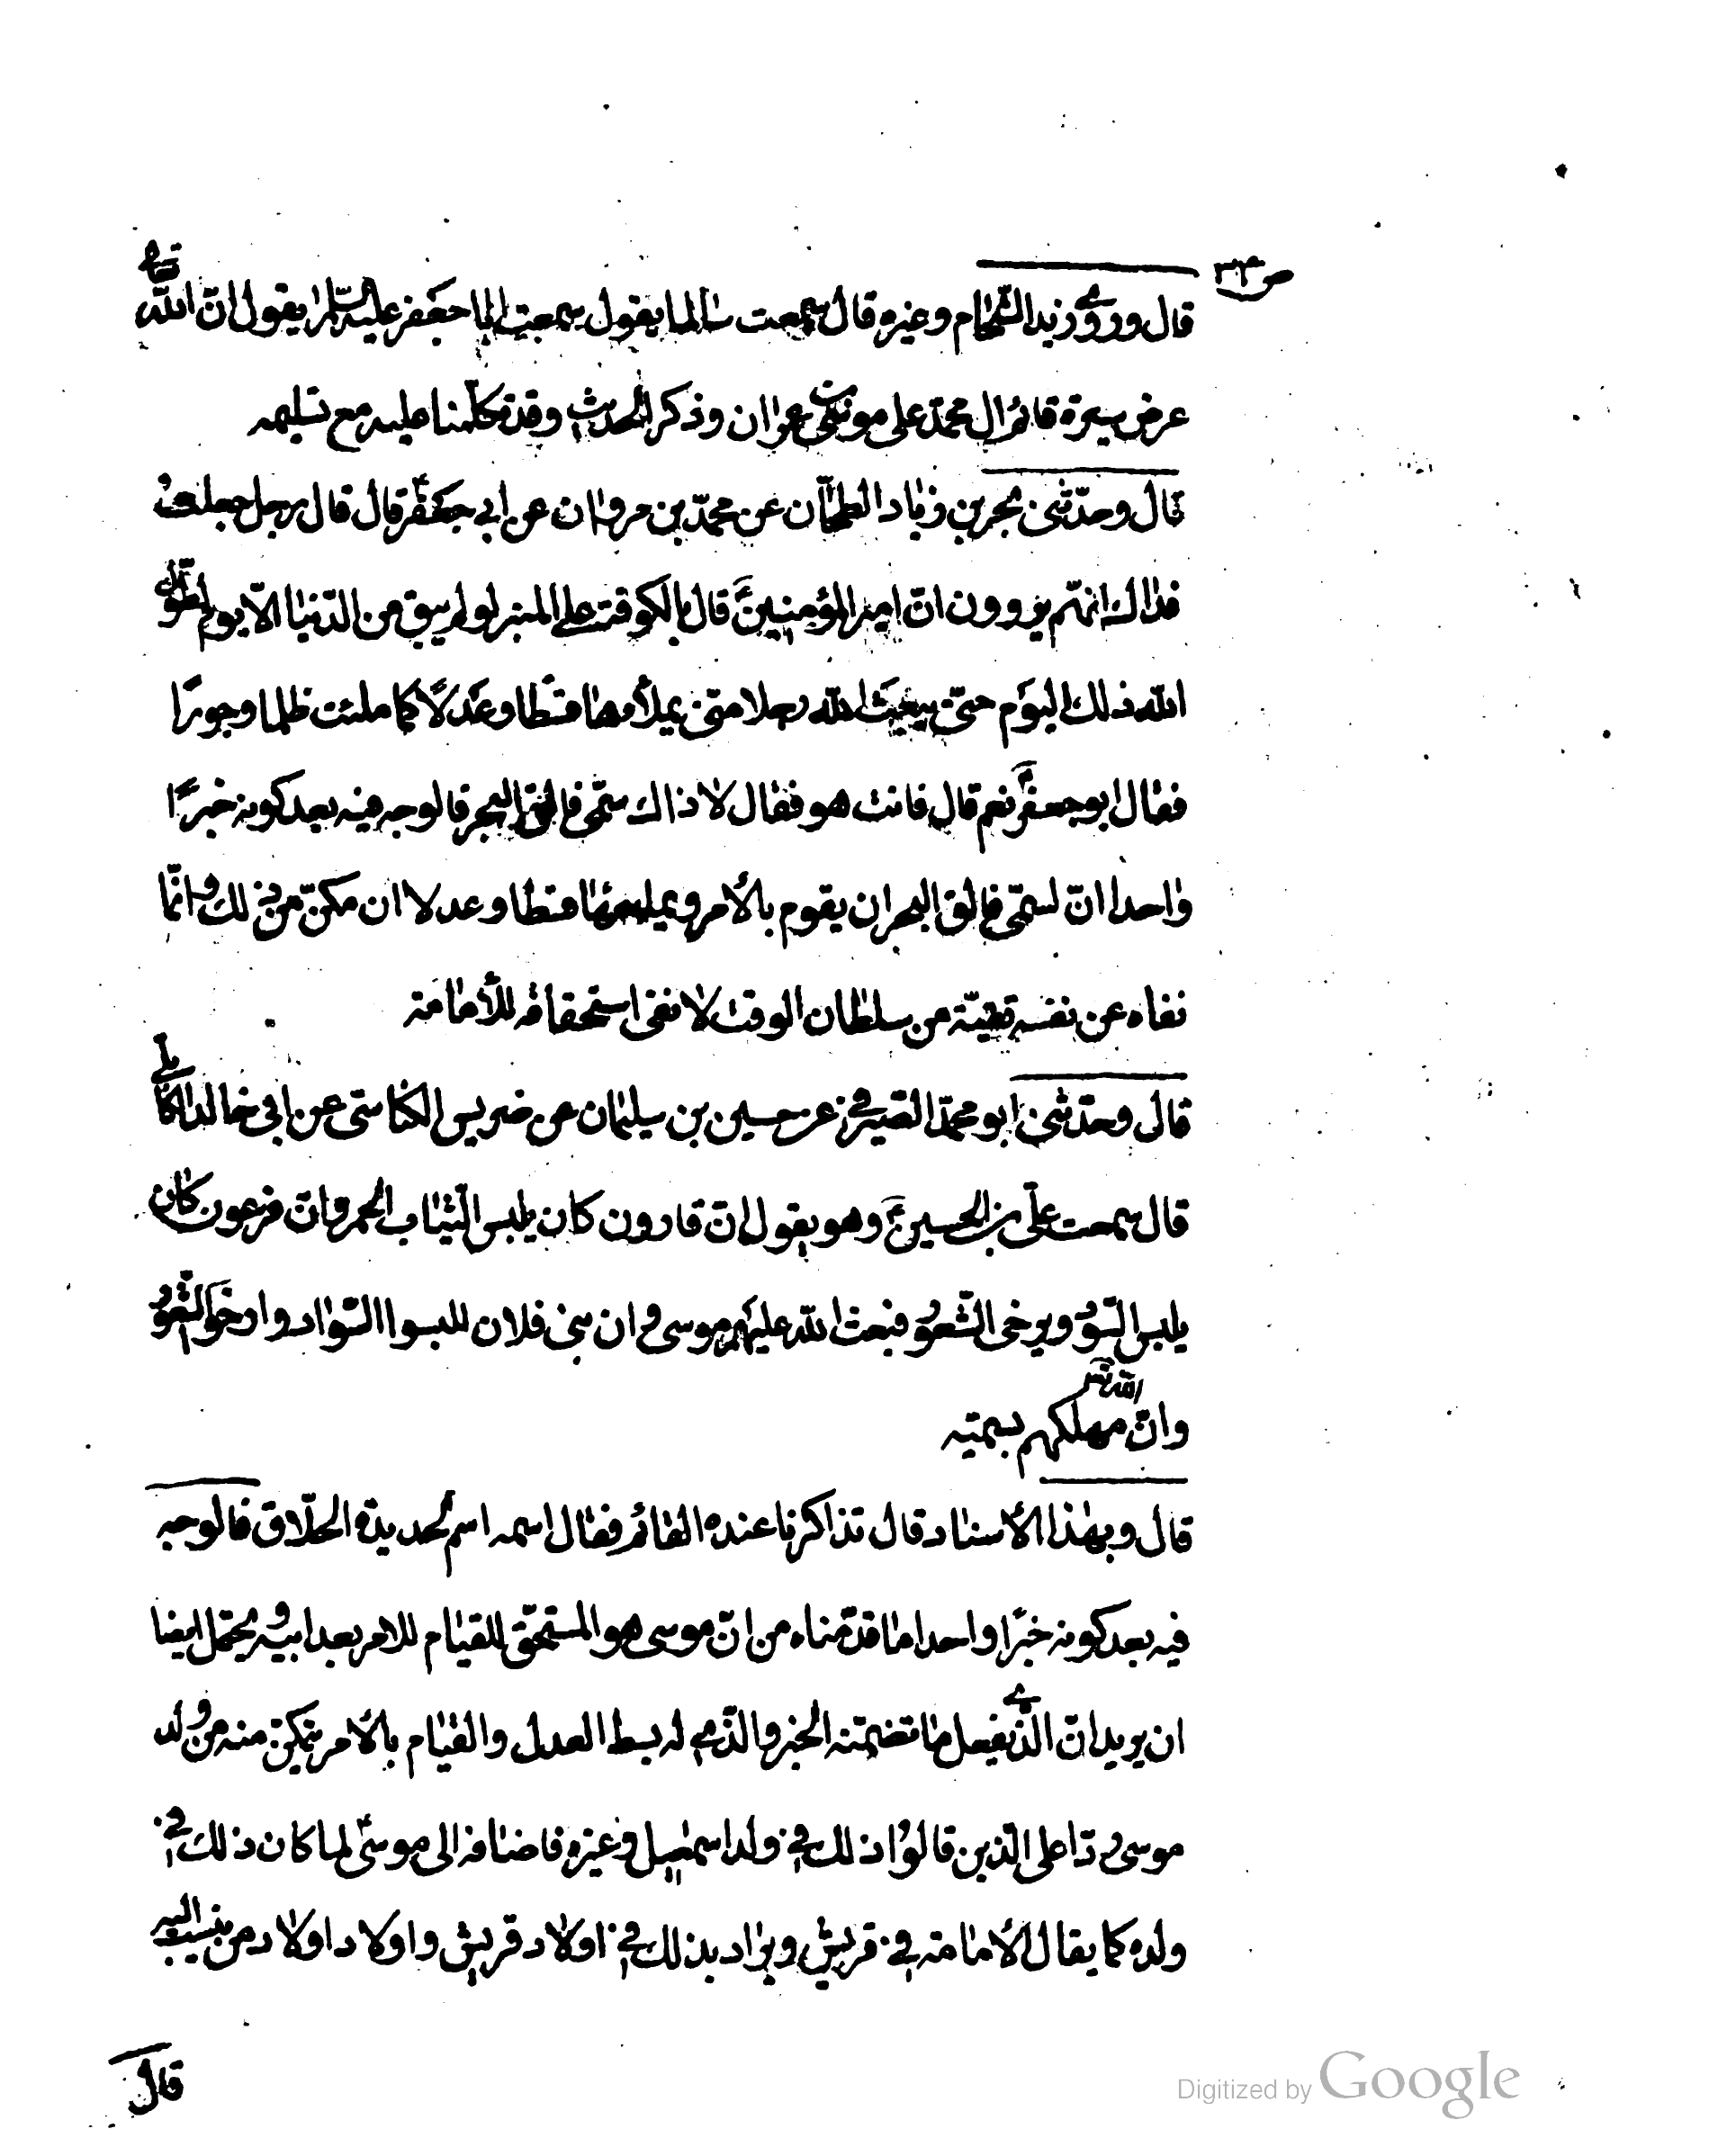 ص ٣٤
قال وروى زيد الشحّام وغيره قال سمعت سالما يقول سمعت ابا جعفر عليه السّلم يقول انّ الله تعالى
عرض سيرة قائم آل محمّد على موسى بن عمران وذكر الحديث وقد تكلّمنا عليه مع تسليمه
قال وحدّثنى بحر بن زياد الطحّان عن محمّد بن مروان عن ابى جعفرؑ قال قال رجل جعلت
فداك انّهم يروون انّ امير المؤمنينؑ قال بالكوفة على المنبر لو لم يبق من الدّنيا الّا يوم لطوّل
الله ذلك اليوم حتّى يبعث الله رجلا منّى يملأها قسطا وعدلًا كما ملئت ظلما وجورًا
فقال ابو جعفرؑ نعم قال فانت هو فقال لا ذاك سمّى فالق البحر فالوجه فيه بعد كونه خبرًا
واحدا انّ لسمّى فالق البحر ان يقوم بالأمر ويملها قسطا وعدلا ان مكّن من ذلك وانّما
نفاه عن نفسه تقيّة من سلطان الوقت لا نفى استحقاقه للأمامة
قال وحدّثنى ابو محمّد الصّيرفى عن حسين بن سليمان عن ضريس الكناسى عن ابى خالد الكابلى
قال سمعت علىّ بن الحسينؑ وهو يقول انّ قارون كان يلبس الثّياب الحمر وانّ فرعون كان
يلبس السّود ويرخى الشّعور فبعث الله عليهم موسىؑ وان بنى فلان للبسوا السّواد وارخوا الشّعور
وانّ الله تعالى مهلكهم بسميّه
قال وبهذا الأسناد قال تذاكرنا عنده القائم فقال اسمه اسم لحديدة الحلّاق فالوجه
فيه بعد كونه خبرًا واحدا ما قدّمناه من انّ موسى هو المستحقّ للقيام للامر بعد ابيه ويحتمل ايضا
ان يريد انّ الّذى يفعل ما تضمّنه الخبر والّذى له بسط العدل والقيام بالأمر يتمكّن منه من ولد
موسى ردّا على الّذين قالوا ذلك فى ولد اسمعيل وغيره فاضافه الى موسىؑ لما كان ذلك فى
ولده كما يقال الأمامة فى قريش ويراد بذلك فى اولاد قريش واولاد اولاد من ينسب اليه
قال
Digitized by Google